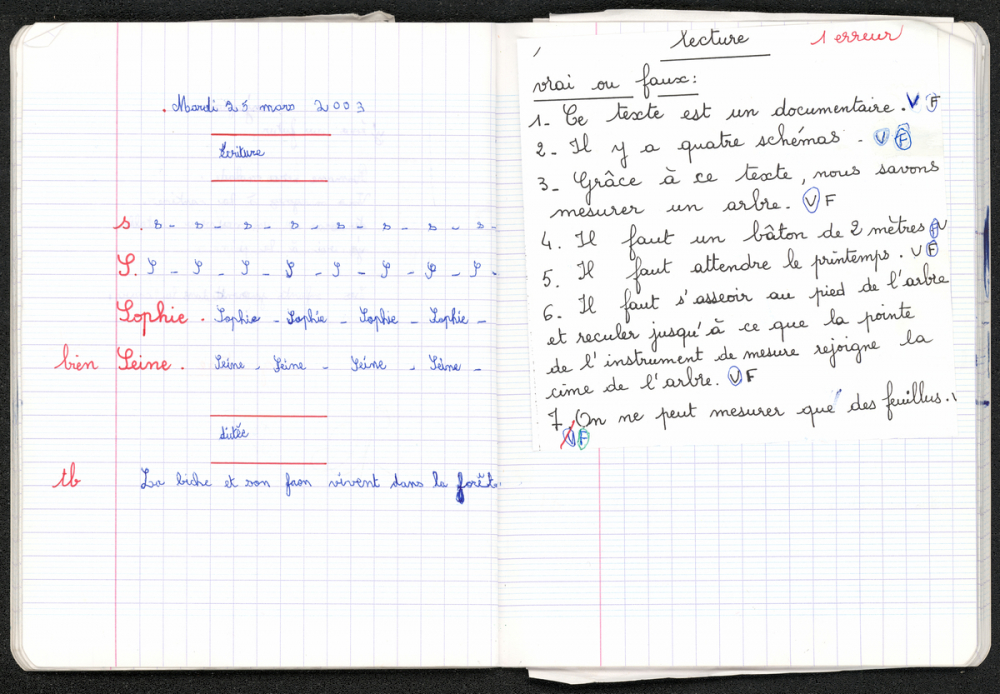 . Mardi 25 mars 2003
Écriture
s. s - s - s - s - s - s - s - s -
S. S - S - S - S - S - S - S - S -
Sophie . Sophie - Sophie - Sophie - Sophie -
bien Seine . Seine - Seine - Seine - Seine -
dictée
tb La biche et son faon vivent dans la forêt.
Lecture 1 erreur
vrai ou faux :
1- Ce texte est un documentaire . V F
2- Il y a quatre schémas . V F
3- Grâce à ce texte, nous savons
mesurer un arbre. V F
4. Il faut un bâton de 2 mètres F V
5. Il faut attendre le printemps . V F
6. Il faut s'asseoir au pied de l'arbre
et reculer jusqu'à ce que la pointe
de l'instrument de mesure rejoigne la
cime de l'arbre. V F
7. On ne peut mesurer que des feuillus.
V F